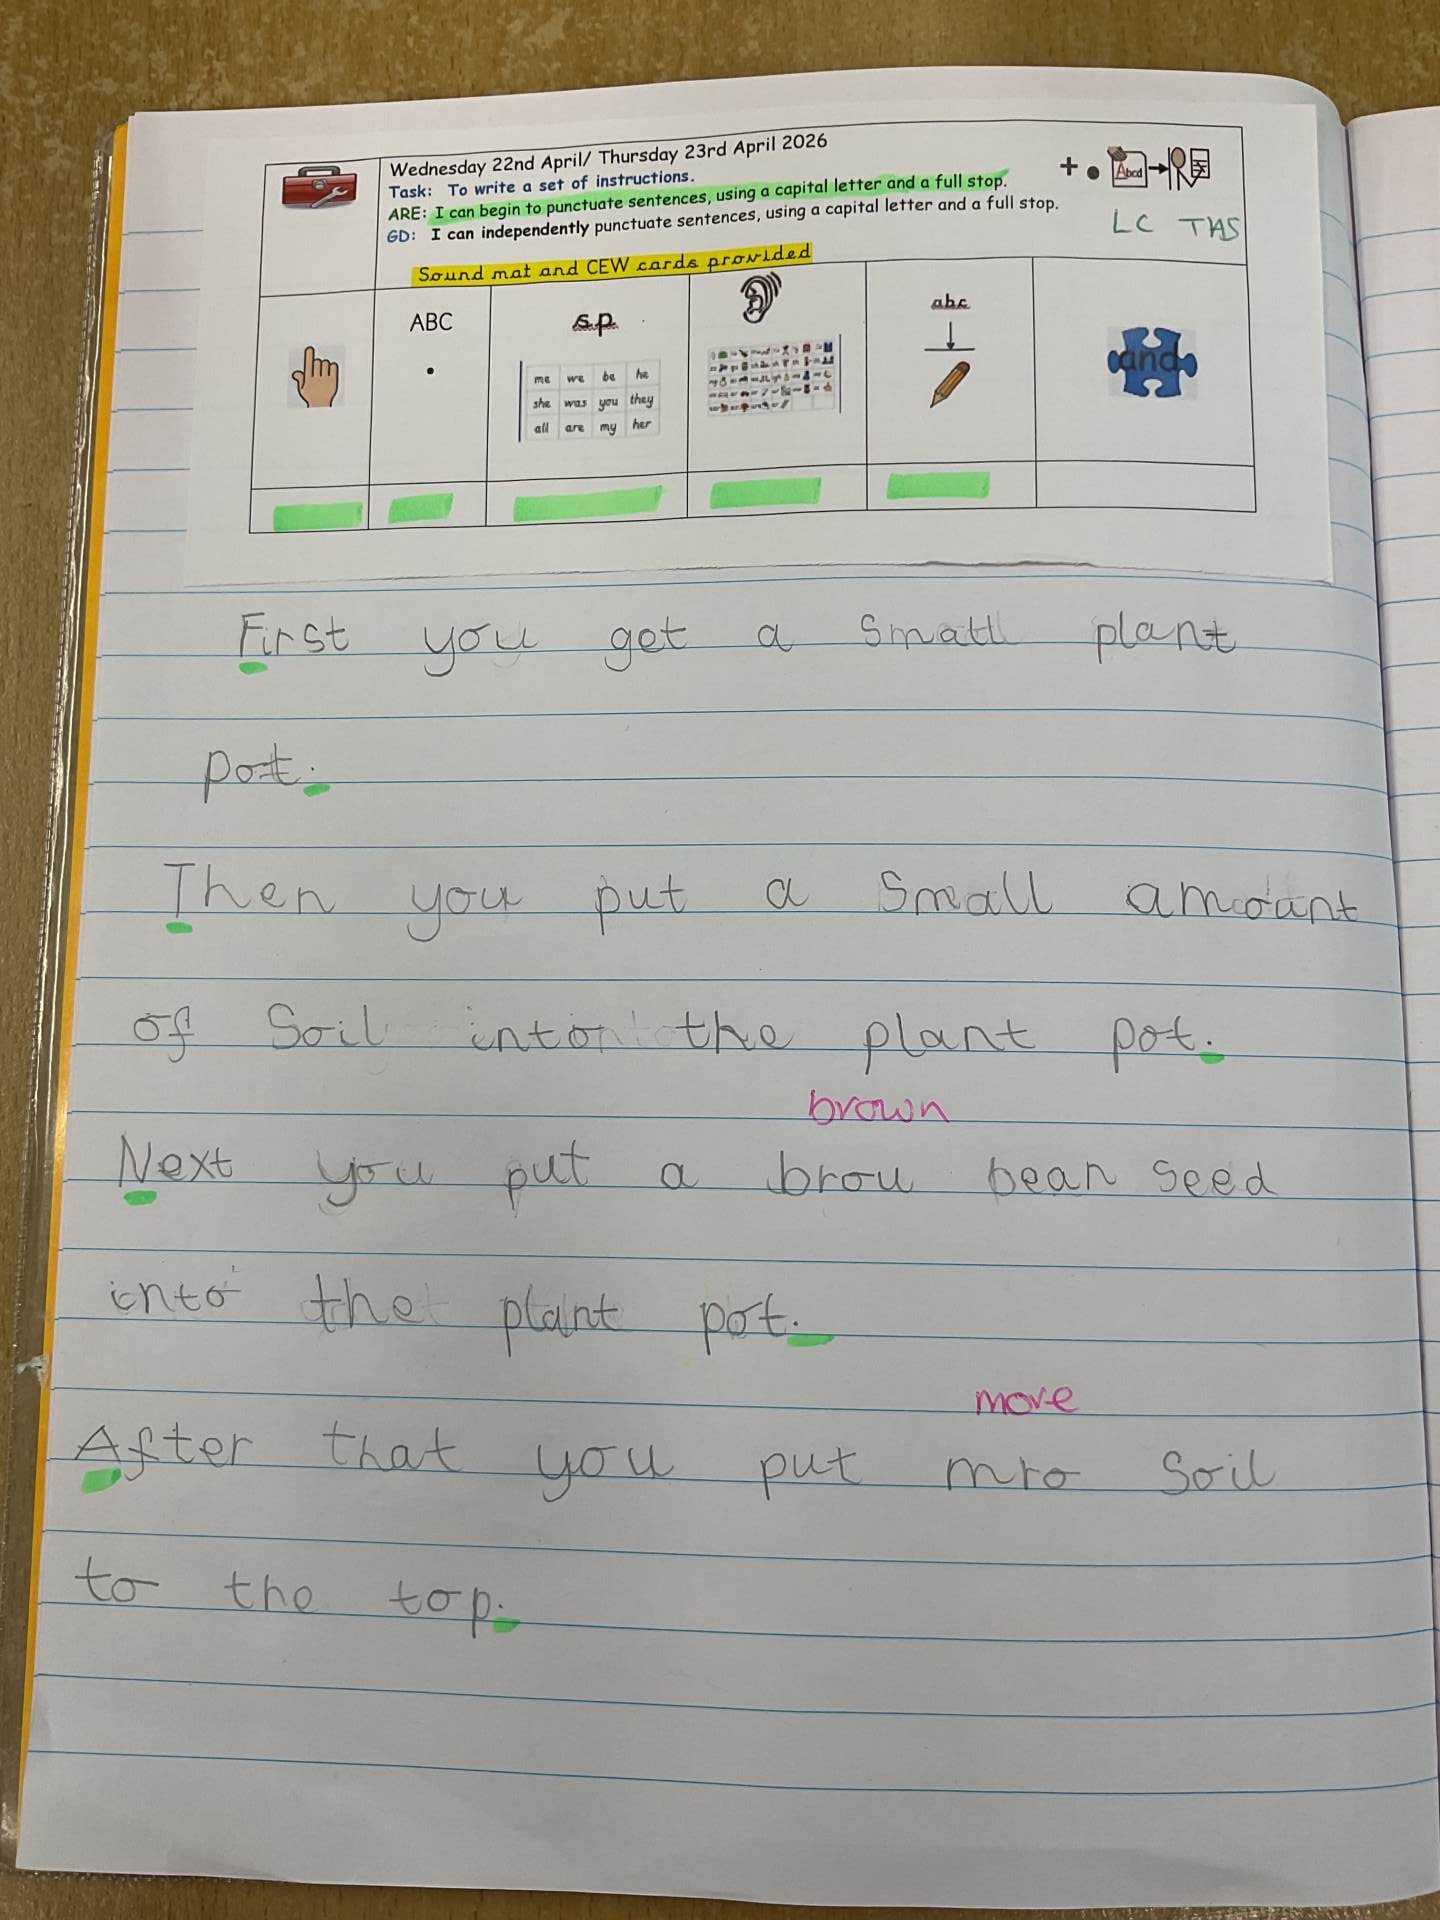 Wednesday 22nd April/ Thursday 23rd April 2026
Task: To write a set of instructions.
ARE: I can begin to punctuate sentences, using a capital letter and a full stop.
GD: I can independently punctuate sentences, using a capital letter and a full stop.
Abcd
LC TAS
Sound mat and CEW cards provided
ABC
.
sp
me we be he
she was you they
all are my her
abc
and
First you get a small plant
pot.
Then you put a small amoant
of Soil into the plant pot.
brown
Next you put a brou bean seed
into the plant pot.
more
After that you put mro Soil
to the top.